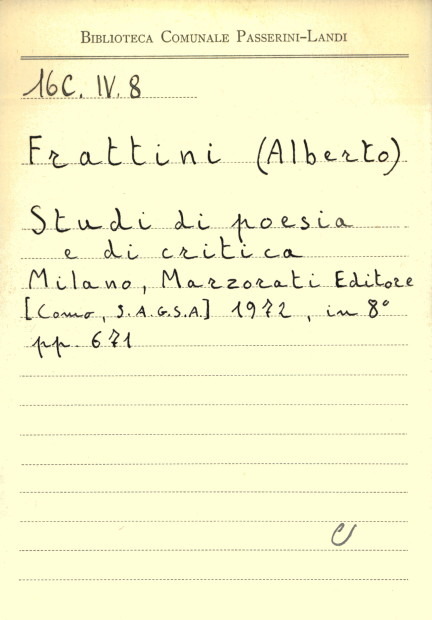 Biblioteca Comunale Passerini-Landi
16C. IV. 8
Frattini (Alberto)
Studi di poesia
e di critica
Milano, Marzorati Editore
[Como, S.A.G.S.A.] 1972, in 8°
pp. 671